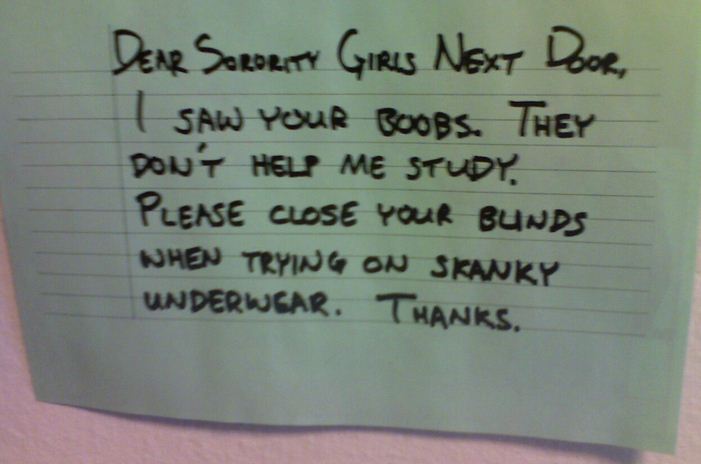 DEAR SORORITY GIRLS NEXT DOOR,
I SAW YOUR BOOBS. THEY
DON'T HELP ME STUDY.
PLEASE CLOSE YOUR BLINDS
WHEN TRYING ON SKANKY
UNDERWEAR. THANKS.